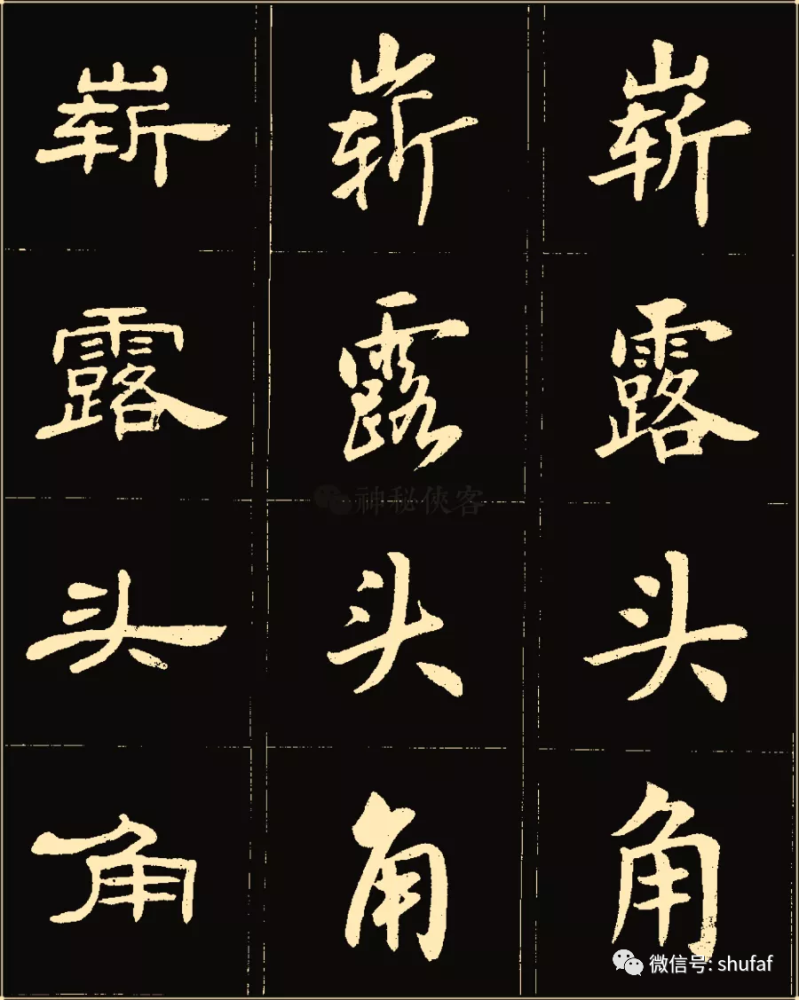 崭 崭 崭
露 露 露
头 头 头
角 角 角
神秘侠客
微信号: shufaf